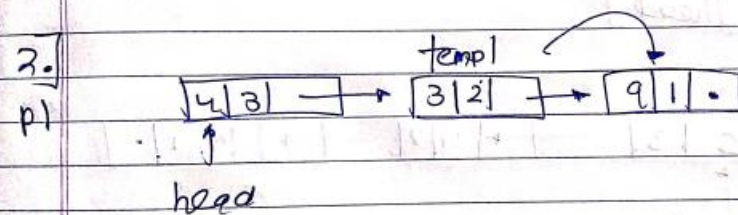 3.
temp1
p1
4 3
3 2
9 1 .
head